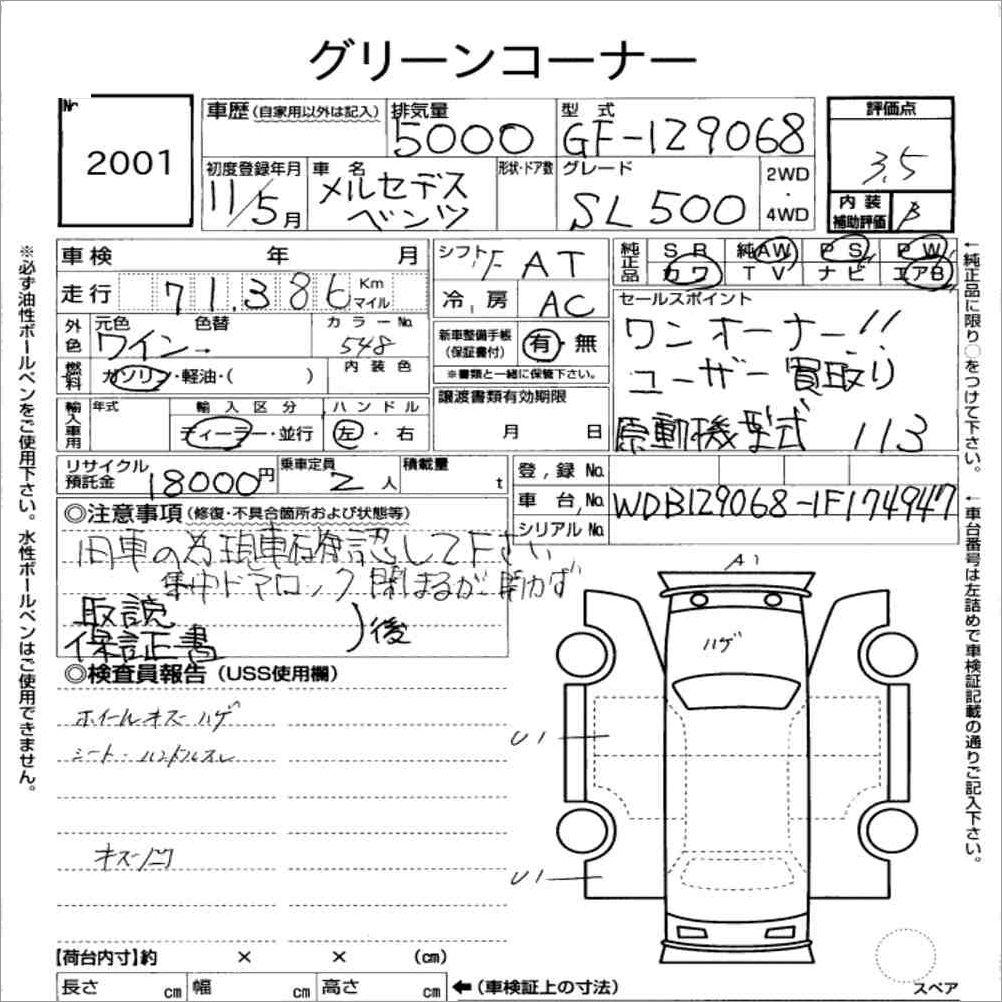 グリーンコーナー
№
2001
車歴(自家用以外は記入)
排気量
5000
型 式
GF-129068
評価点
3.5
初度登録年月
11/5月
車 名
メルセデス
ベンツ
形状・ドア数
グレード
SL500
2WD
・
4WD
内 装
補助評価
B
車検 年 月
シフト
F AT
純正品
SR 純AW PS PW
カワ TV ナビ エアB
走行 71,386 Km マイル
冷 房
AC
セールスポイント
ワンオーナー!!
ユーザー買取り
原動機型式 113
外色
元色 色替
ワイン→
カラーNo.
548
新車整備手帳
(保証書付)
有・無
※書類と一緒に保管下さい。
燃料
ガソリン・軽油・( )
内 装 色
輸入車用
年式
輸 入 区 分
ディーラー・並行
ハ ン ド ル
左・右
譲渡書類有効期限
月 日
リサイクル
預託金
18000円
乗車定員
2人
積載量
t
登 録 No.
車 台 No.
WDB129068-1F174947
シリアル No.
◎注意事項(修復・不具合箇所および状態等)
旧車の為現車確認して下さい
集中ドアロック閉はるが開かず
取説
保証書
)後
◎検査員報告(USS使用欄)
ホイールキズハゲ
シート・ハンドルスレ
キズ凹
A1
ハゲ
U1
U1
【荷台内寸】約 × × (cm)
長さ cm 幅 cm 高さ cm
←(車検証上の寸法)
スペア
※必ず油性ボールペンをご使用下さい。水性ボールペンはご使用できません。
←純正品に限り○をつけて下さい。
←車台番号は左詰めで車検証記載の通りご記入下さい。